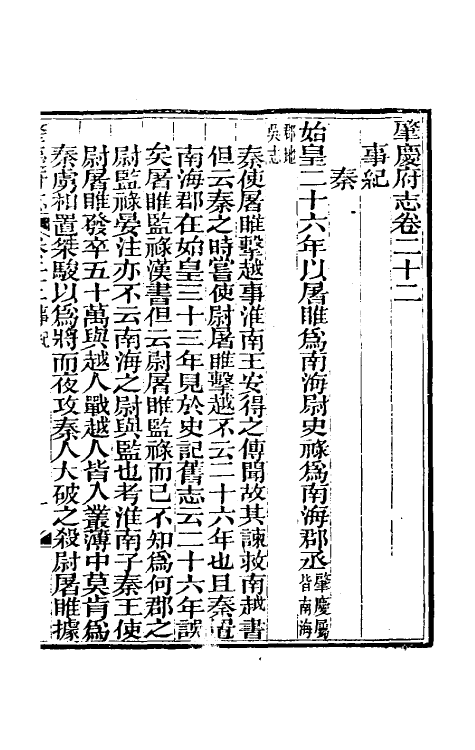 肇慶府志卷二十二
事紀
秦
始皇二十六年以屠睢爲南海尉史祿爲南海郡丞肇慶屬皆南海
郡地吳志
秦使屠睢擊越事淮南王安得之傳聞故其諫救南越書
但云秦之時嘗使尉屠睢擊越不云二十六年也且秦置
南海郡在始皇三十三年見於史記舊志云二十六年誤
矣屠睢監祿漢書但云尉屠睢監祿而已不知爲何郡之
尉監祿晏注亦不云南海之尉與監也考淮南子秦王使
尉屠睢發卒五十萬與越人戰越人皆入叢薄中莫肯爲
秦虜相置桀駿以爲將而夜攻秦人大破之殺尉屠睢據
肇慶府志 卷二十二 事紀 一